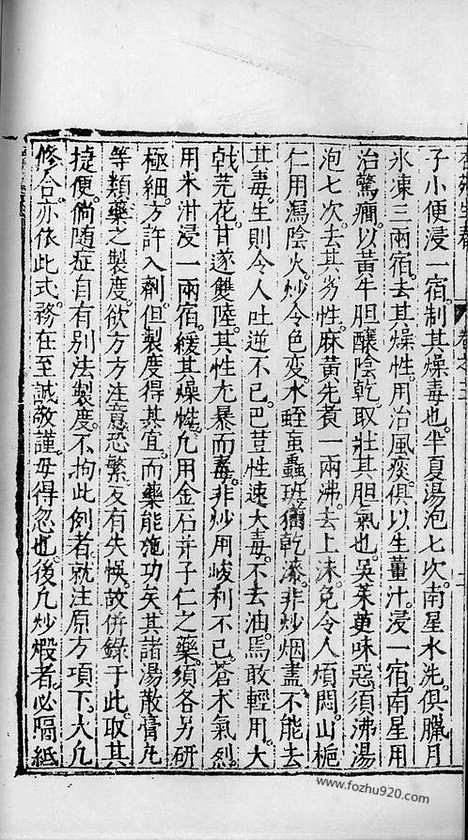 子小便浸一宿。制其燥毒也。半夏湯泡七次。南星水洗。俱臘月
氷凍三兩宿。去其燥性。用治風痰。俱以生薑汁。浸一宿。南星用
治驚癎。以黃牛胆釀陰乾。取壯其胆氣也。吳茱萸味惡。須沸湯
泡七次。去其劣性。麻黃先煑一兩沸。去上沫。免令人煩悶。山梔
仁用濕陰火。炒令色變。水蛭蝱蟲班猫乾漆。非炒烟盡。不能去
其毒。生則令人吐逆不已。巴荳性速大毒。不去油。焉敢輕用。大
戟芫花甘遂雙陸。其性尤暴而毒。非炒用峻利不已。蒼术氣烈。
用米泔浸一兩宿。緩其燥性。凡用金石并子仁之藥。須各另研
極細。方許入劑。但製度得其宜。而藥能施功矣。其諸湯散膏丸
等類。藥之製度。欲方方注意。恐繁。反有失悮。故併錄于此。取其
捷便。倘随症自有别法製度。不拘此例者。就注原方項下。大凡
修合。亦依此式。務在至誠敬謹。毋得忽也。後凡炒煆者。必隔紙
卷之
www.fozhu920.com